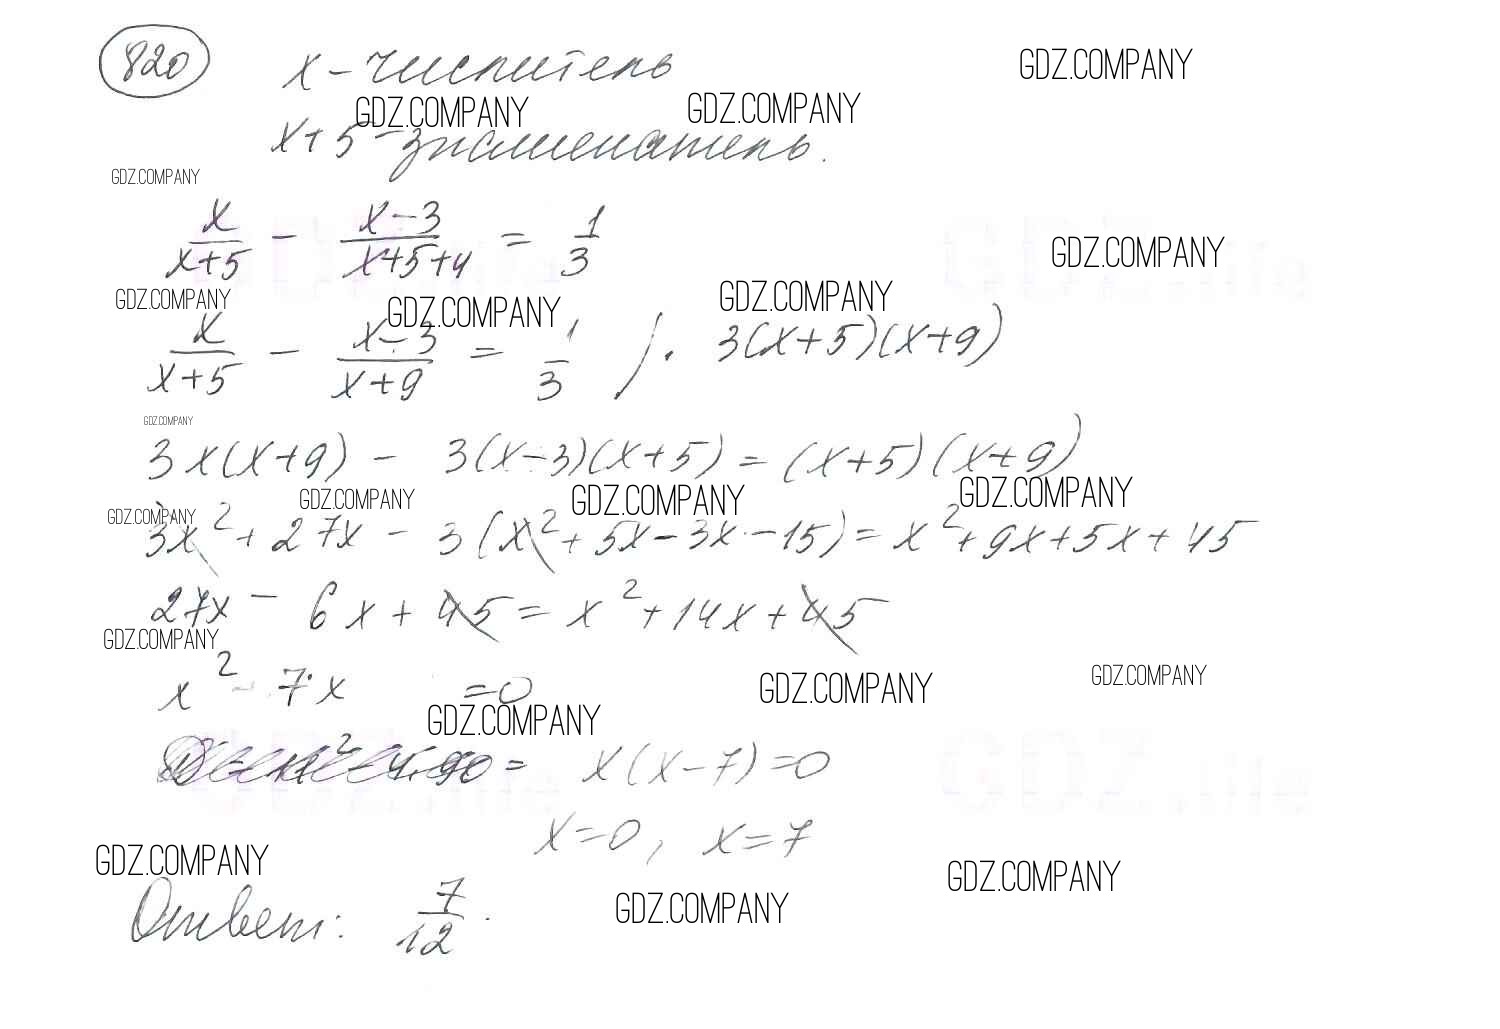 820
x - числитель
GDZ.COMPANY
GDZ.COMPANY GDZ.COMPANY
x+5 - знаменатель.
GDZ.COMPANY
x/(x+5) - (x-3)/(x+5+4) = 1/3
GDZ.life GDZ.life
GDZ.COMPANY
GDZ.COMPANY GDZ.COMPANY GDZ.COMPANY
x/(x+5) - (x-3)/(x+9) = 1/3 /· 3(x+5)(x+9)
GDZ.COMPANY
3x(x+9) - 3(x-3)(x+5) = (x+5)(x+9)
GDZ.COMPANY GDZ.COMPANY GDZ.COMPANY
GDZ.COMPANY
3x² + 27x - 3(x² + 5x - 3x - 15) = x² + 9x + 5x + 45
27x - 6x + 45 = x² + 14x + 45
GDZ.COMPANY
x² - 7x = 0
GDZ.COMPANY GDZ.COMPANY
GDZ.COMPANY
x(x-7)=0
GDZ.life GDZ.life
x=0, x=7
GDZ.COMPANY
GDZ.COMPANY
Ответ: 7/12.
GDZ.COMPANY